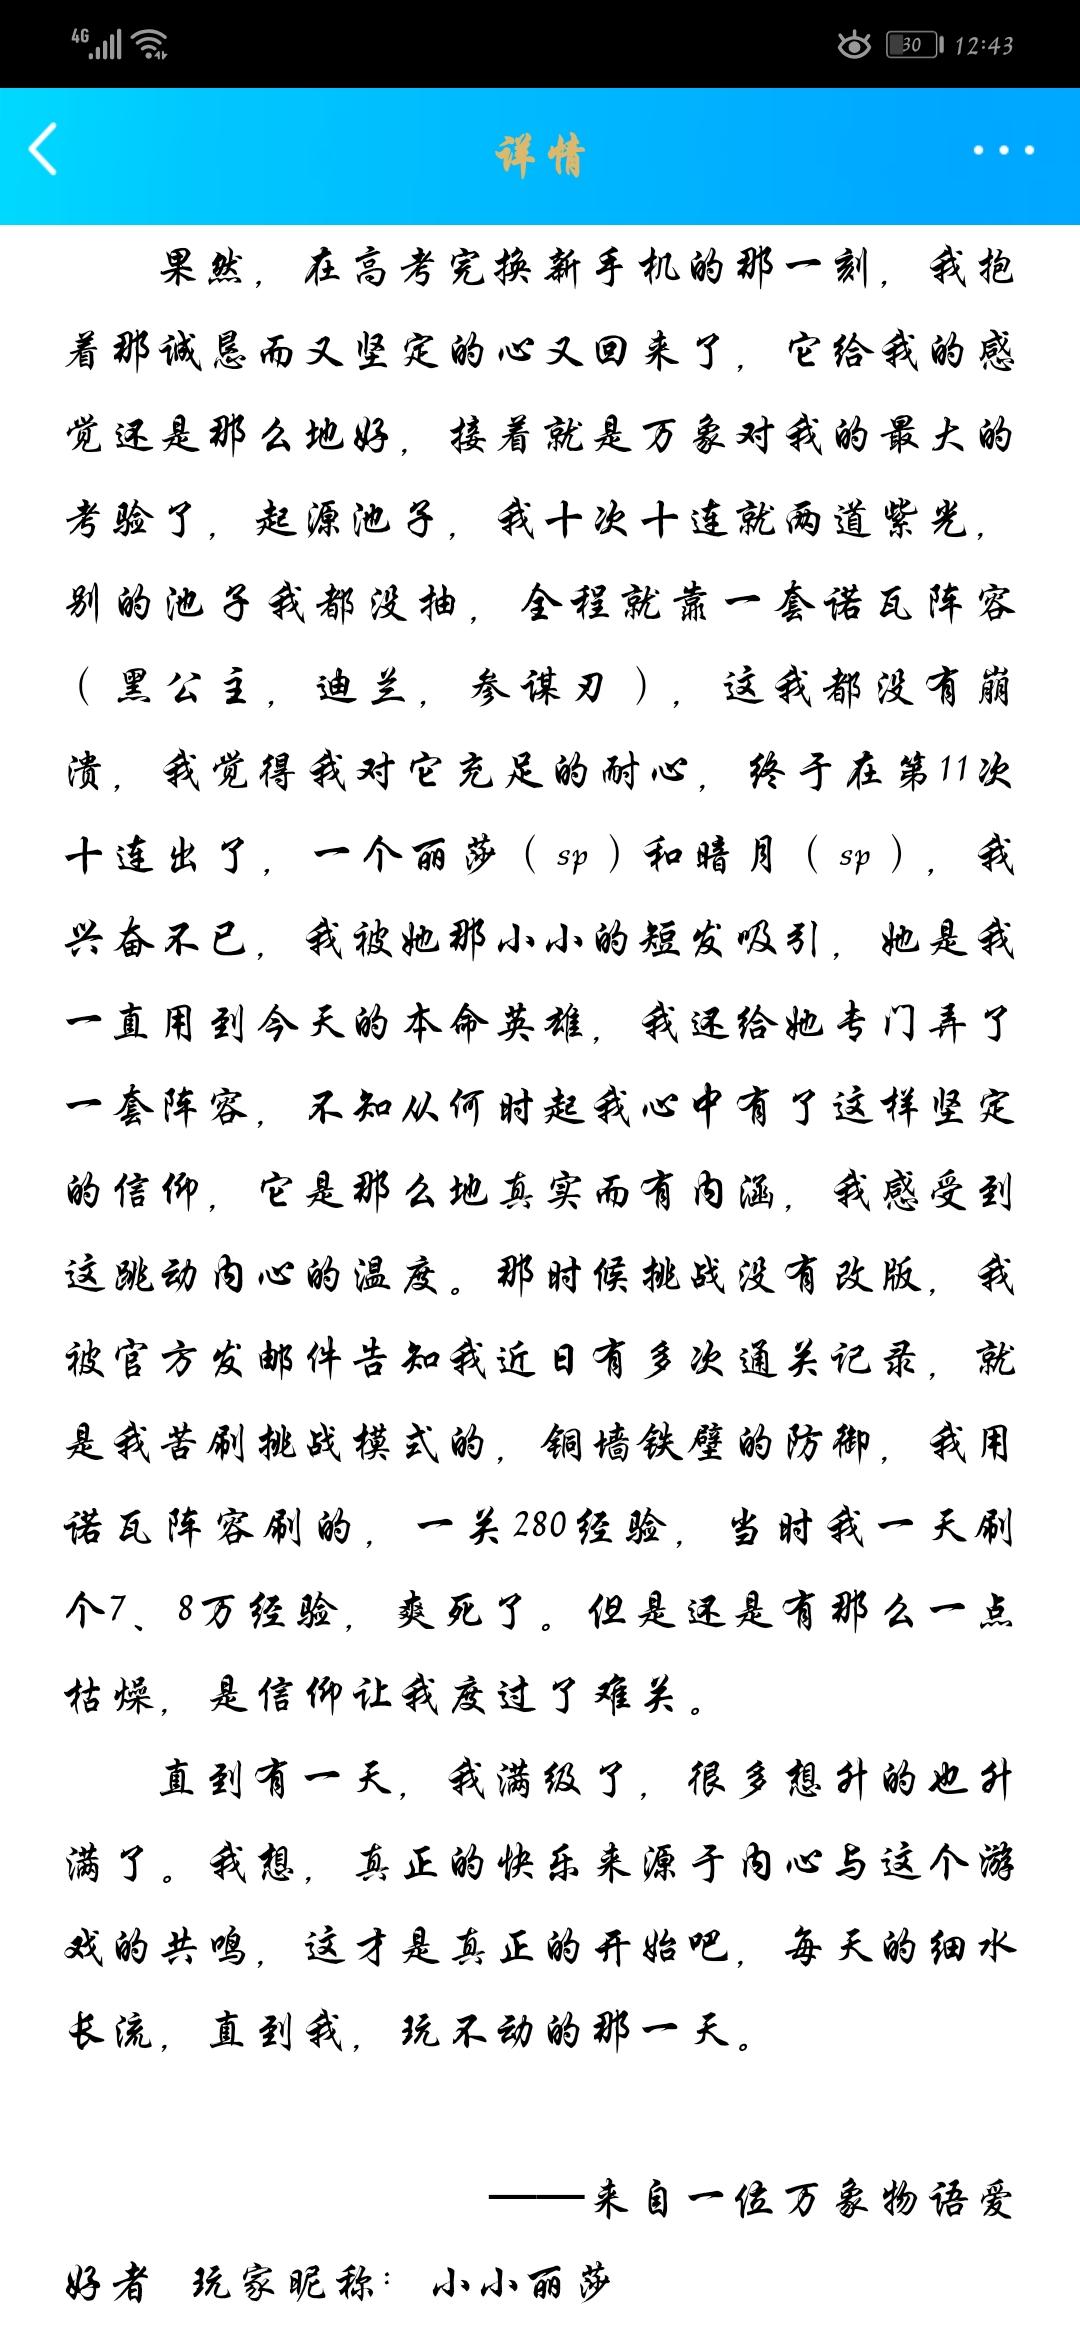 4G 30 12:43
详情
果然，在高考完换新手机的那一刻，我抱
着那诚恳而又坚定的心又回来了，它给我的感
觉还是那么地好，接着就是万象对我的最大的
考验了，起源池子，我十次十连就两道紫光，
别的池子我都没抽，全程就靠一套诺瓦阵容
（黑公主，迪兰，参谋刃），这我都没有崩
溃，我觉得我对它充足的耐心，终于在第11次
十连出了，一个丽莎（sp）和暗月（sp），我
兴奋不已，我被她那小小的短发吸引，她是我
一直用到今天的本命英雄，我还给她专门弄了
一套阵容，不知从何时起我心中有了这样坚定
的信仰，它是那么地真实而有内涵，我感受到
这跳动内心的温度。那时候挑战没有改版，我
被官方发邮件告知我近日有多次通关记录，就
是我苦刷挑战模式的，铜墙铁壁的防御，我用
诺瓦阵容刷的，一关280经验，当时我一天刷
个7、8万经验，爽死了。但是还是有那么一点
枯燥，是信仰让我度过了难关。
直到有一天，我满级了，很多想升的也升
满了。我想，真正的快乐来源于内心与这个游
戏的共鸣，这才是真正的开始吧，每天的细水
长流，直到我，玩不动的那一天。
——来自一位万象物语爱
好者 玩家昵称：小小丽莎